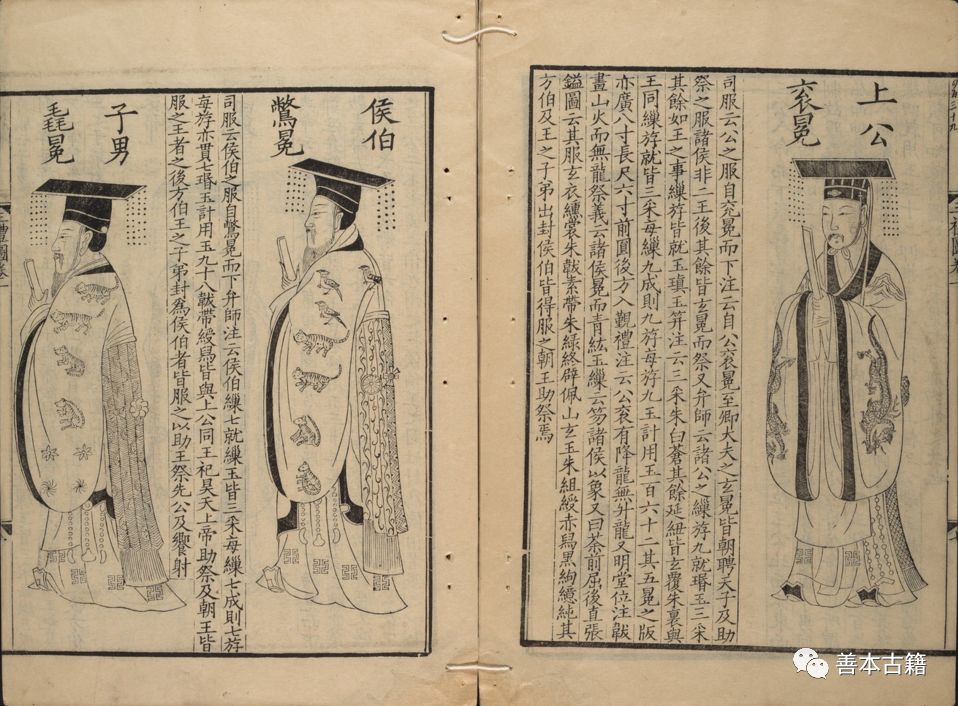 上公
袞冕
司服云公之服自衮冕而下注云自公衮冕至卿大夫之玄冕皆朝聘天子及助
祭之服諸侯非二王後其餘皆玄冕而祭又弁師云諸公之繅斿九就瑉玉三采
其餘如王之事繅斿皆就玉瑱玉笄注云三采朱白蒼其餘延紐皆玄覆朱裏與
王同繅斿就皆三采每繅九成則九斿每斿九玉計用玉百六十二其五冕之版
亦廣八寸長尺六寸前圓後方入覲禮注云公衮有降龍無升龍又明堂位注韍
畫山火而無龍祭義云諸侯冕而青紘玉繅云笏諸侯以象又曰荼前屈後直張
鎰圖云其服玄衣纁裳朱韍素帶朱綠終辟佩山玄玉朱組綬赤舄黑絇繶純其
方伯及王之子弟出封侯伯皆得服之朝王助祭焉
侯伯
鷩冕
司服云侯伯之服自鷩冕而下弁師注云侯伯繅七就繅玉皆三采每繅七成則七斿
每斿亦貫七瑉玉計用玉九十八韍帶綬舄皆與上公同王祀昊天上帝助祭及朝王皆
服之王者之後方伯王之子弟封為侯伯者皆服之以助王祭先公及饗射
子男
毳冕
善本古籍